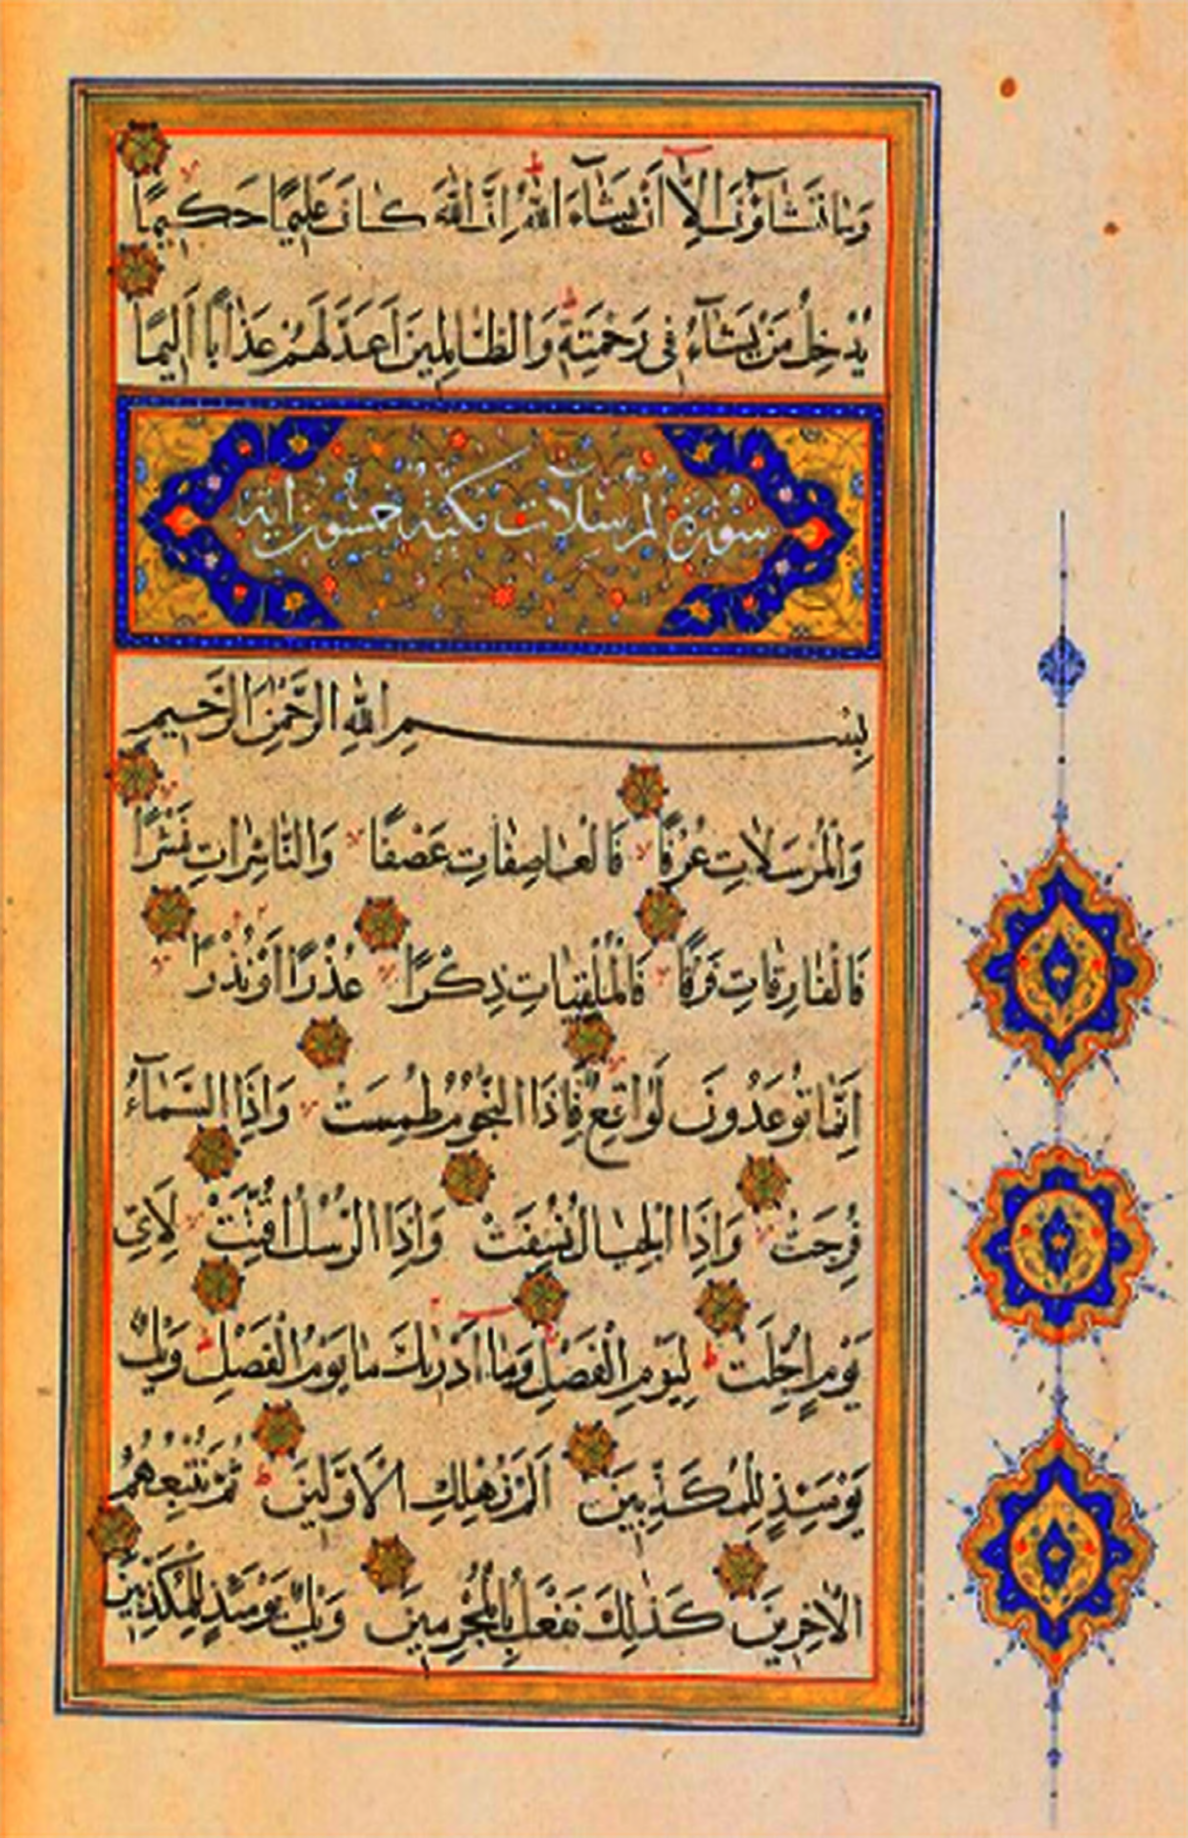 وَمَا تَشَآؤُنَ اِلَّآ اَنْ يَشَآءَ اللّٰهُ اِنَّ اللّٰهَ كَانَ عَلِيمًا حَكِيمًا
يُدْخِلُ مَنْ يَشَآءُ فِى رَحْمَتِهٖ وَالظَّالِمِينَ اَعَدَّ لَهُمْ عَذَابًا اَلِيمًا
سورة المرسلات مكية خمسون اية
بِسْمِ اللّٰهِ الرَّحْمٰنِ الرَّحِيمِ
وَالْمُرْسَلَاتِ عُرْفًا فَالْعَاصِفَاتِ عَصْفًا وَالنَّاشِرَاتِ نَشْرًا
فَالْفَارِقَاتِ فَرْقًا فَالْمُلْقِيَاتِ ذِكْرًا عُذْرًا اَوْ نُذْرًا
اِنَّمَا تُوعَدُونَ لَوَاقِعٌ فَاِذَا النُّجُومُ طُمِسَتْ وَاِذَا السَّمَآءُ
فُرِجَتْ وَاِذَا الْجِبَالُ نُسِفَتْ وَاِذَا الرُّسُلُ اُقِّتَتْ لِاَىِّ
يَوْمٍ اُجِّلَتْ لِيَوْمِ الْفَصْلِ وَمَا اَدْرٰيكَ مَا يَوْمُ الْفَصْلِ وَيْلٌ
يَوْمَئِذٍ لِلْمُكَذِّبِينَ اَلَمْ نُهْلِكِ الْاَوَّلِينَ ثُمَّ نُتْبِعُهُمُ
الْاٰخِرِينَ كَذٰلِكَ نَفْعَلُ بِالْمُجْرِمِينَ وَيْلٌ يَوْمَئِذٍ لِلْمُكَذِّبِينَ